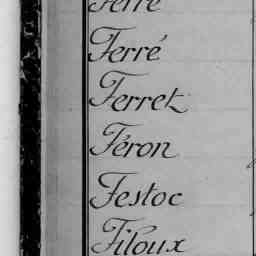 Ferre
Ferré
Ferret
Féron
Festoc
Filoux